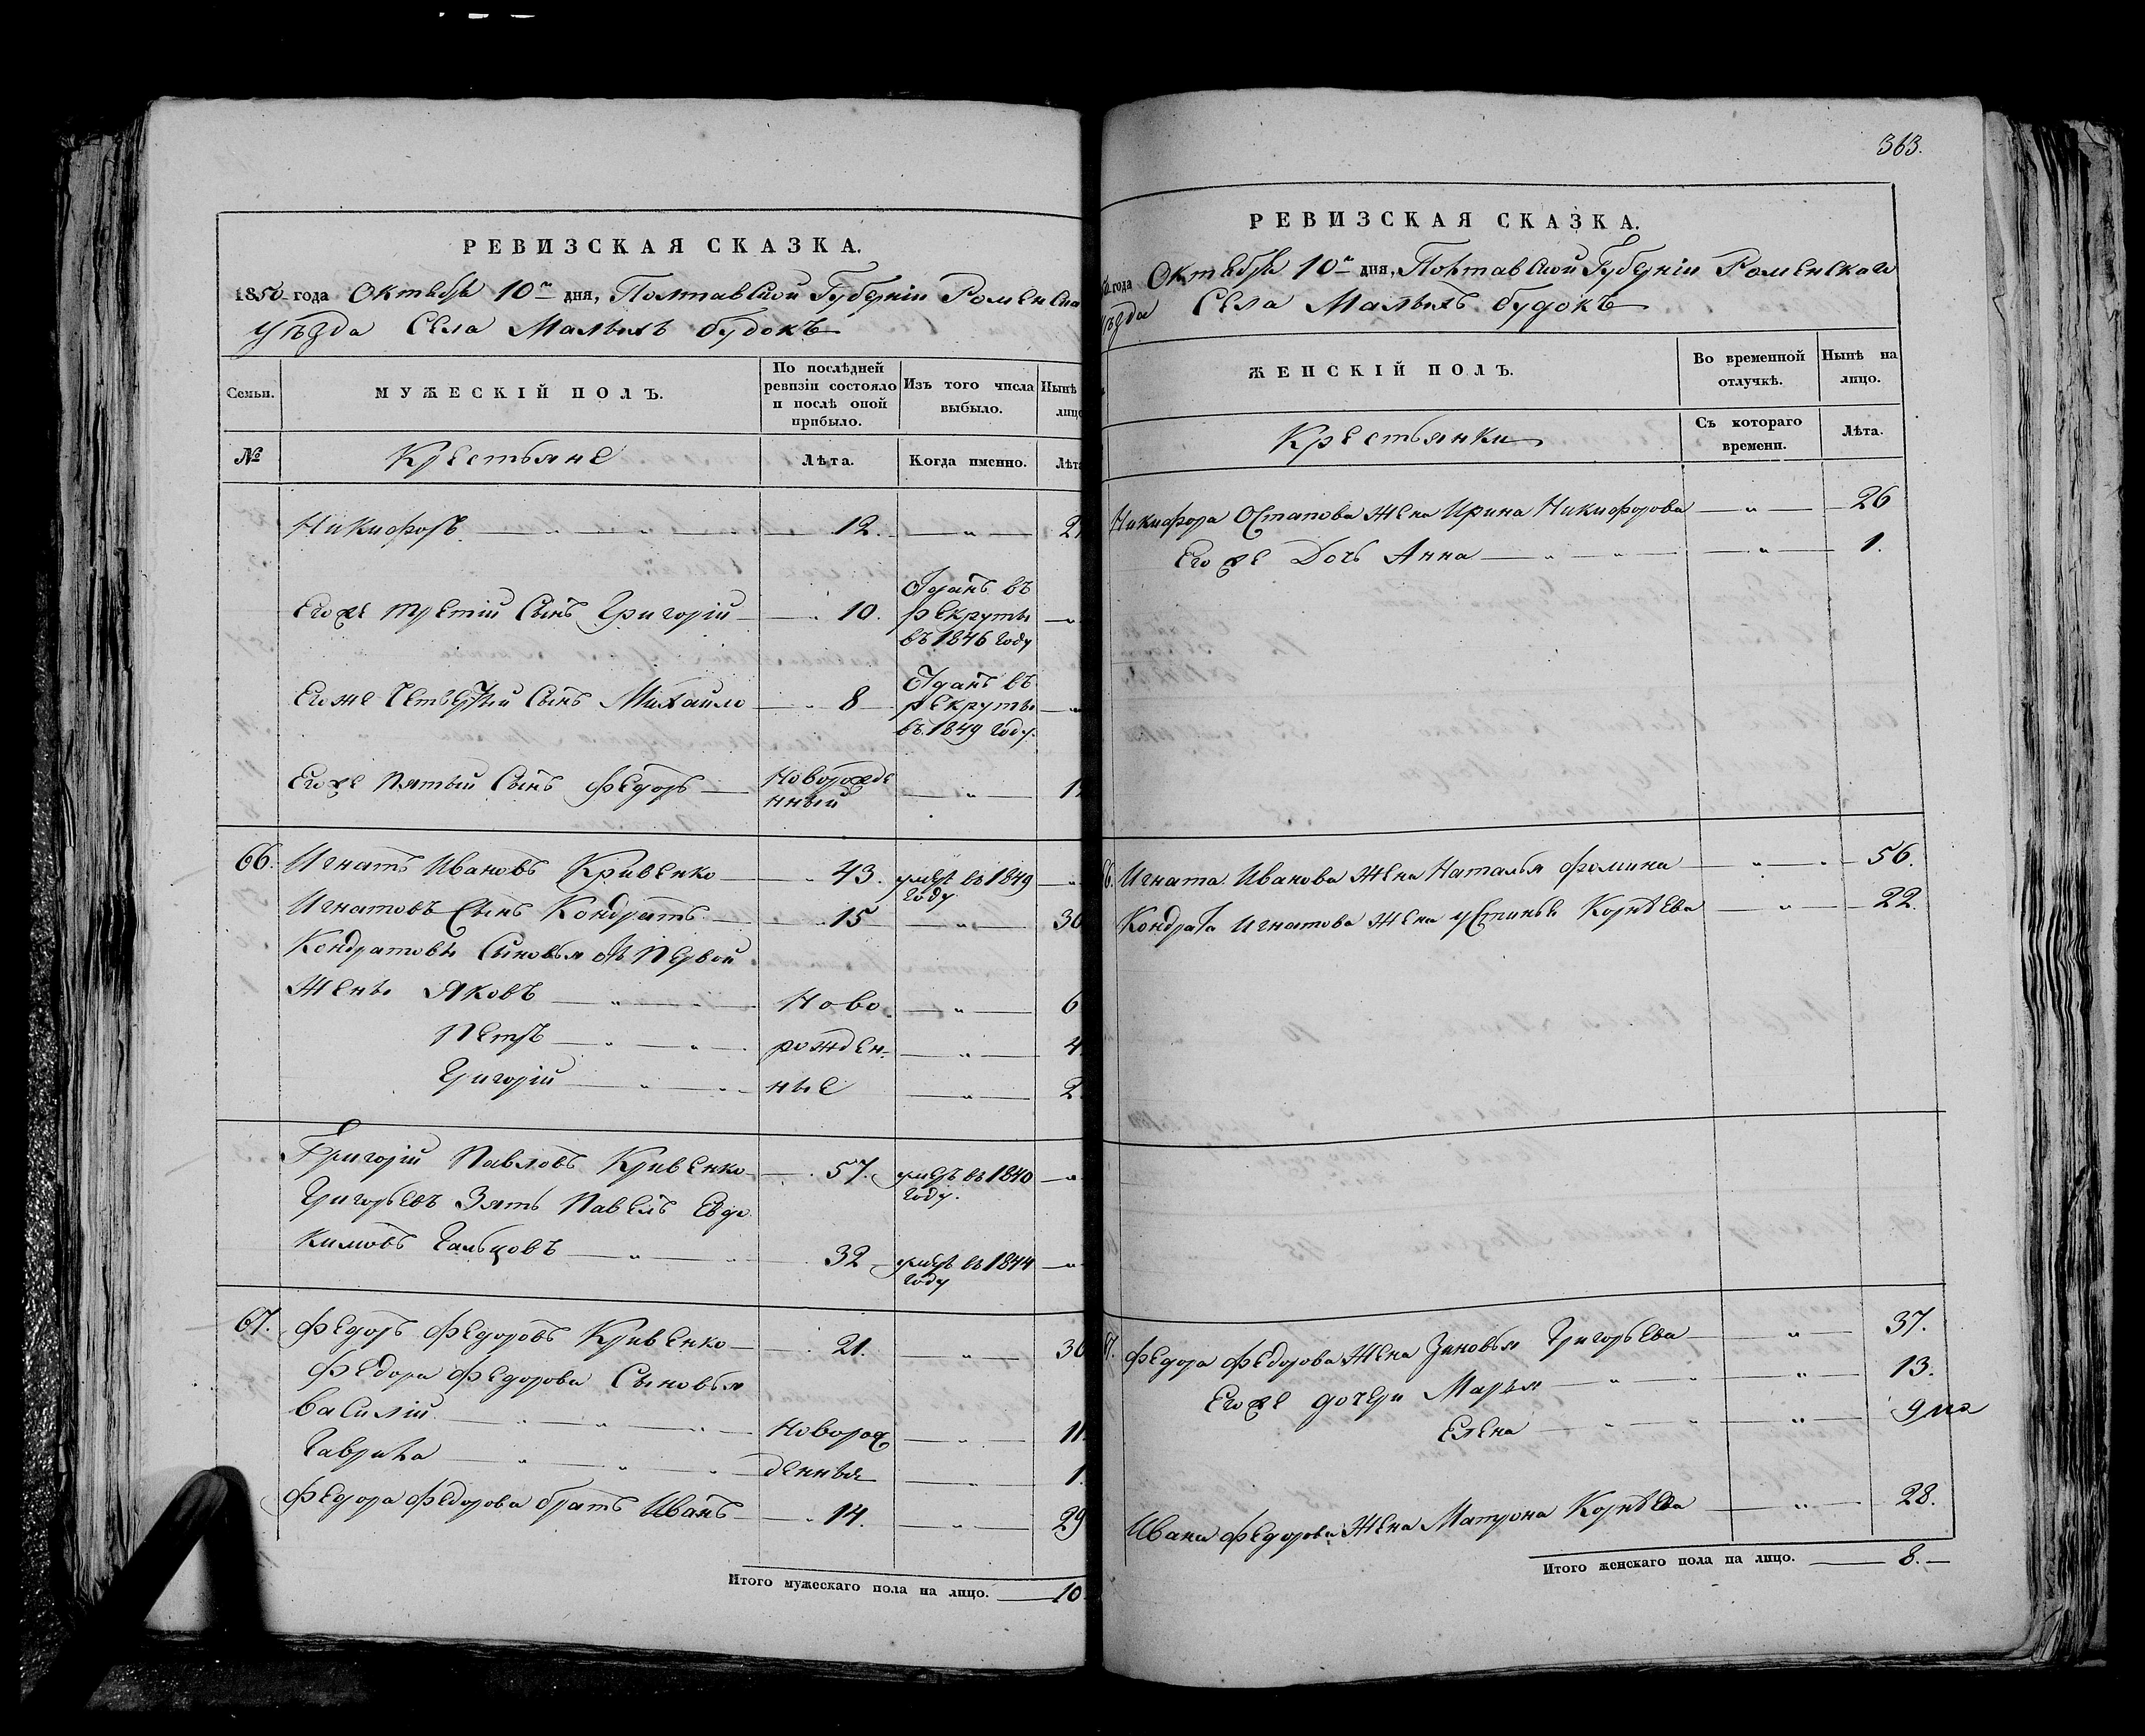 РЕВИЗСКАЯ СКАЗКА.
1850 года Октября 10го дня, Полтавской Губерніи Роменска
уѣзда Села Малыхъ будокъ
Семьи.
МУЖЕСКІЙ ПОЛЪ.
По послѣдней ревизіи состояло и послѣ оной прибыло.
Изъ того числа выбыло.
Нынѣ
лицо
№
Крестьяне
Лѣта.
Когда именно.
Лѣта
Никифоръ 12. „
Его же третій Сынъ Григорій 10. Отданъ въ рекруты въ 1846 году „
Его же Четвертый Сынъ Михайло 8 Отданъ въ рекруты въ 1849 году. „
Его же Пятый Сынъ Федоръ Новорожде нный „
66. Игнатъ Ивановъ Кривенко 43. умеръ въ 1849 году „
Игнатовъ Сынъ Кондратъ 15 „ 30
Кондратовы Сыновья отъ Первой
Жены Яковъ Ново „ 6
Петръ рожден- „ 4
Григорій ные „ 2
Григорій Павловъ Кривенко 57. умеръ въ 1840 году. „
Григорьевъ Зять Павелъ Евдо
кимовъ Гальцовъ 32 умеръ въ 1844 году „
67. Федоръ Федоровъ Кривенко 21. „ 36
Федора Федорова Сыновья
Василій Новорож „ 11.
Гаврила денные „ 1.
Федора Федорова братъ Иванъ 14. „ 29
Итого мужескаго пола на лицо. 10
363.
РЕВИЗСКАЯ СКАЗКА.
года Октября 10го дня, Полтавской Губерніи Роменскаго
уѣзда Села Малыхъ будокъ
ЖЕНСКІЙ ПОЛЪ.
Во временной отлучкѣ.
Нынѣ на лицо.
Крестьянки
Съ котораго времени.
Лѣта.
Никифора Остапова жена Ирина Никифорова „ 26
Его же Дочь Анна „ 1.
66. Игната Иванова Жена Наталья Фомина „ 56.
Кондрата Игнатова жена Устинья Корнѣева „ 22.
67. Федора Федорова Жена Зиновья Григорьева „ 37.
Его же дочери Марья „ 13.
Елена „ 9 ме
Ивана Федорова Жена Матрона Корнѣева „ 28.
Итого женскаго пола на лицо. 8.